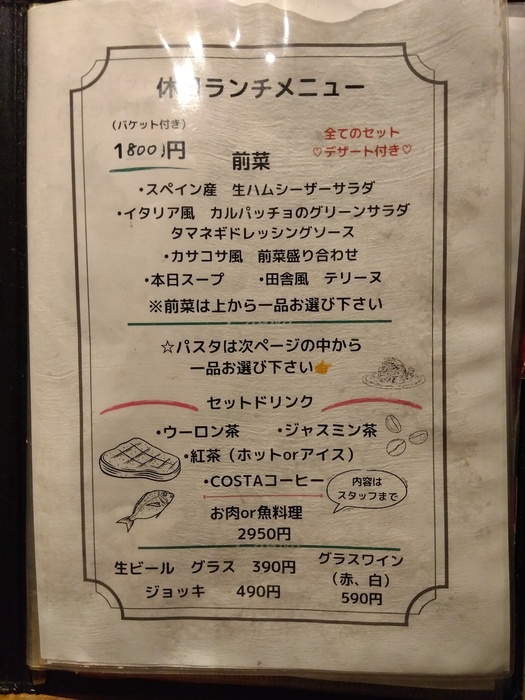 休日ランチメニュー
(バケット付き)
1800円
全てのセット
♡デザート付き♡
前菜
・スペイン産 生ハムシーザーサラダ
・イタリア風 カルパッチョのグリーンサラダ
タマネギドレッシングソース
・カサコサ風 前菜盛り合わせ
・本日スープ ・田舎風 テリーヌ
※前菜は上から一品お選び下さい
☆パスタは次ページの中から
一品お選び下さい👉
セットドリンク
・ウーロン茶 ・ジャスミン茶
・紅茶(ホットorアイス)
・COSTAコーヒー
内容は
スタッフまで
お肉or魚料理
2950円
生ビール グラス 390円
ジョッキ 490円
グラスワイン
(赤、白)
590円